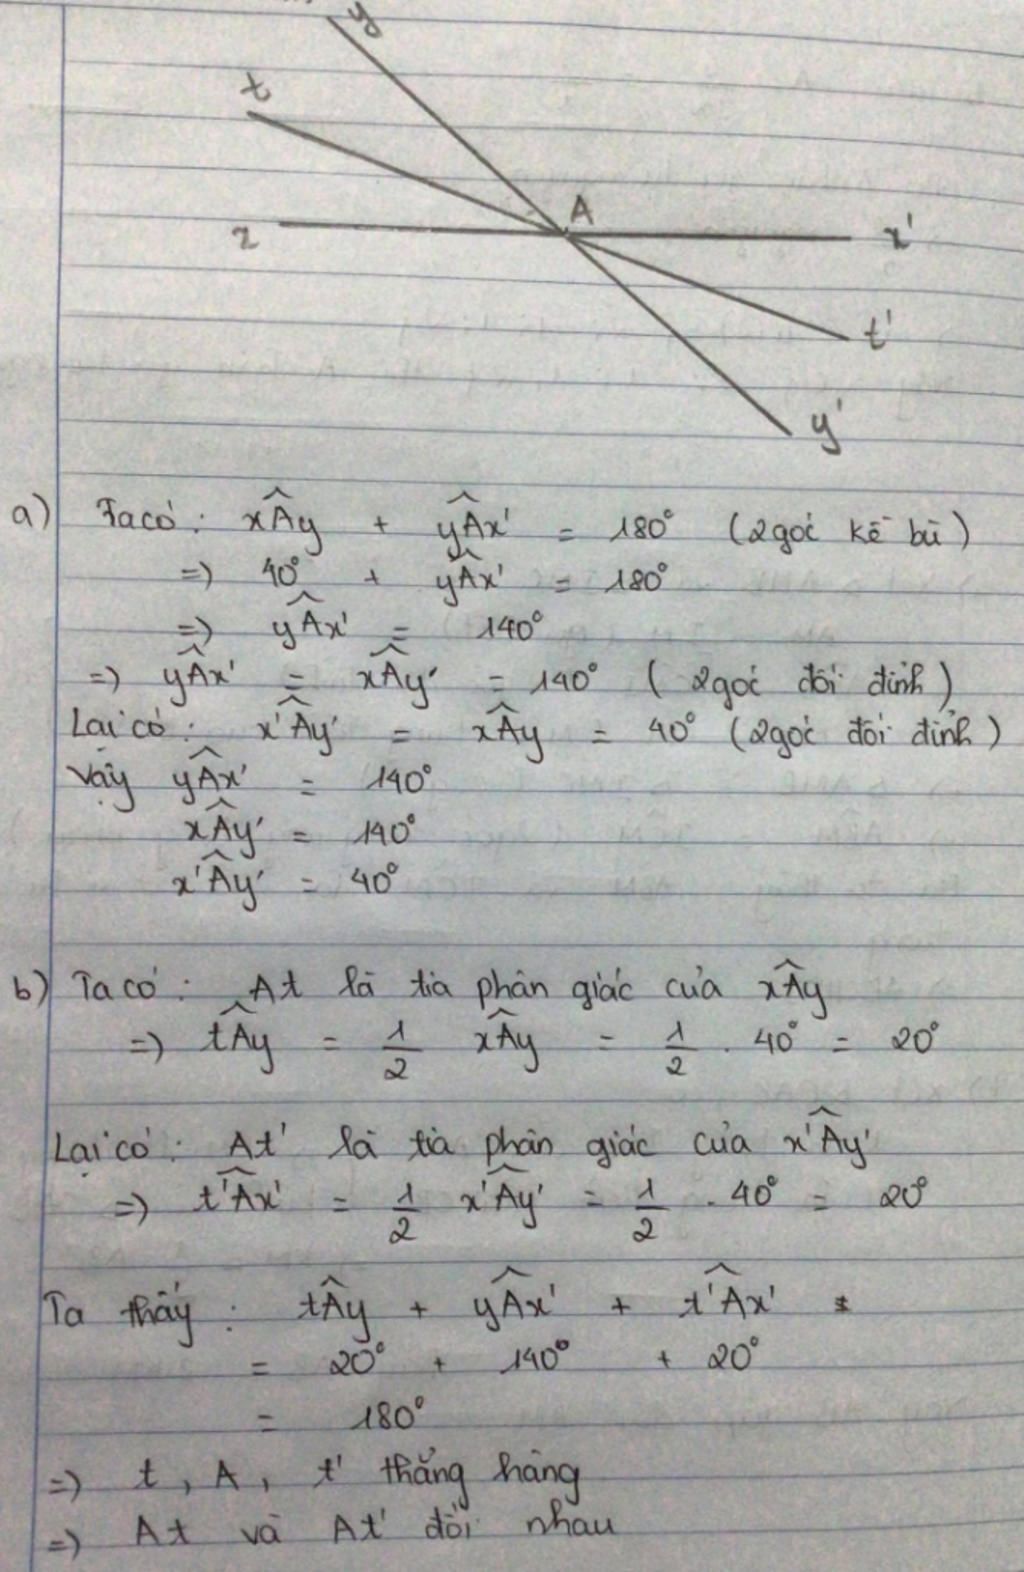 y
t
A
x
x'
t'
y'
a) Ta có: xÂy + yÂx' = 180° (2 góc kề bù)
=> 40° + yÂx' = 180°
=> yÂx' = 140°
=> yÂx' = xÂy' = 140° (2 góc đối đỉnh)
Lại có: x'Ây' = xÂy = 40° (2 góc đối đỉnh)
Vậy yÂx' = 140°
xÂy' = 140°
x'Ây' = 40°
b) Ta có: At là tia phân giác của xÂy
=> tÂy = 1/2 xÂy = 1/2 . 40° = 20°
Lại có: At' là tia phân giác của x'Ây'
=> t'Âx' = 1/2 x'Ây' = 1/2 . 40° = 20°
Ta thấy: tÂy + yÂx' + t'Âx'
= 20° + 140° + 20°
= 180°
=> t, A, t' thẳng hàng
=> At và At' đối nhau